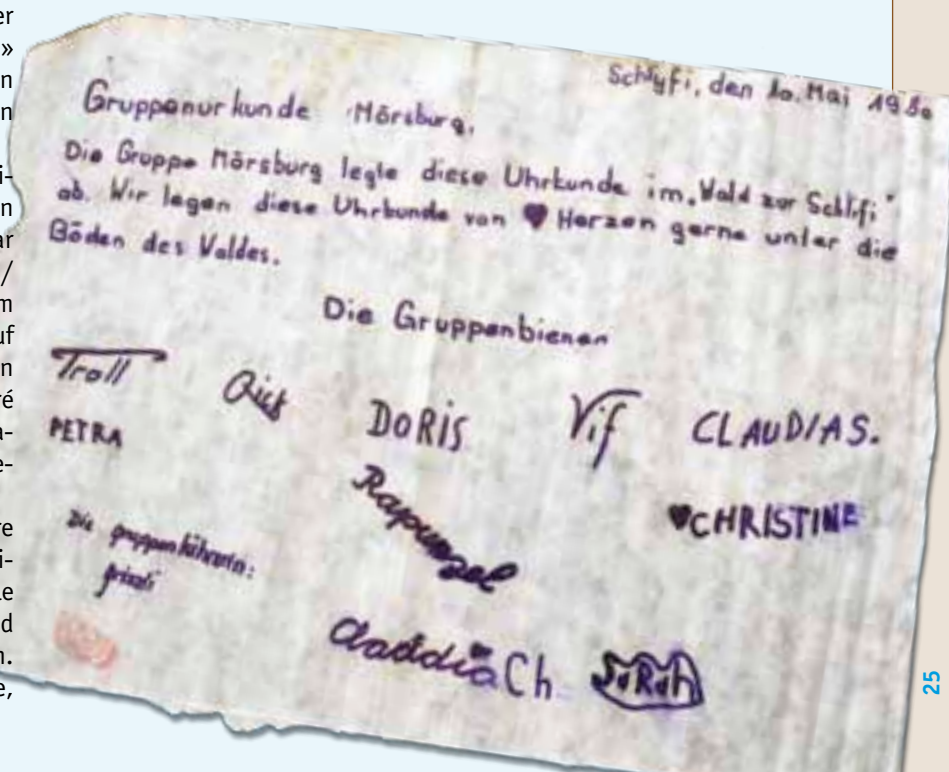 er
»
n
n
i-
n
ar
/
m
uf
n
ré
a-
e-
re
i-
le
d
n.
e,
Schlyfi, den 10. Mai 1980
Gruppenurkunde Mörsburg.
Die Gruppe Mörsburg legte diese Uhrkunde im „Wald zur Schlifi"
ab. Wir legen diese Uhrkunde von ♥ Herzen gerne unter die
Böden des Waldes.
Die Gruppenbienen
Troll Quick DORIS Vif CLAUDIA S.
PETRA Rapunzel ♥CHRISTINE
Die gruppenführerin:
Claudia Ch SARAH
25